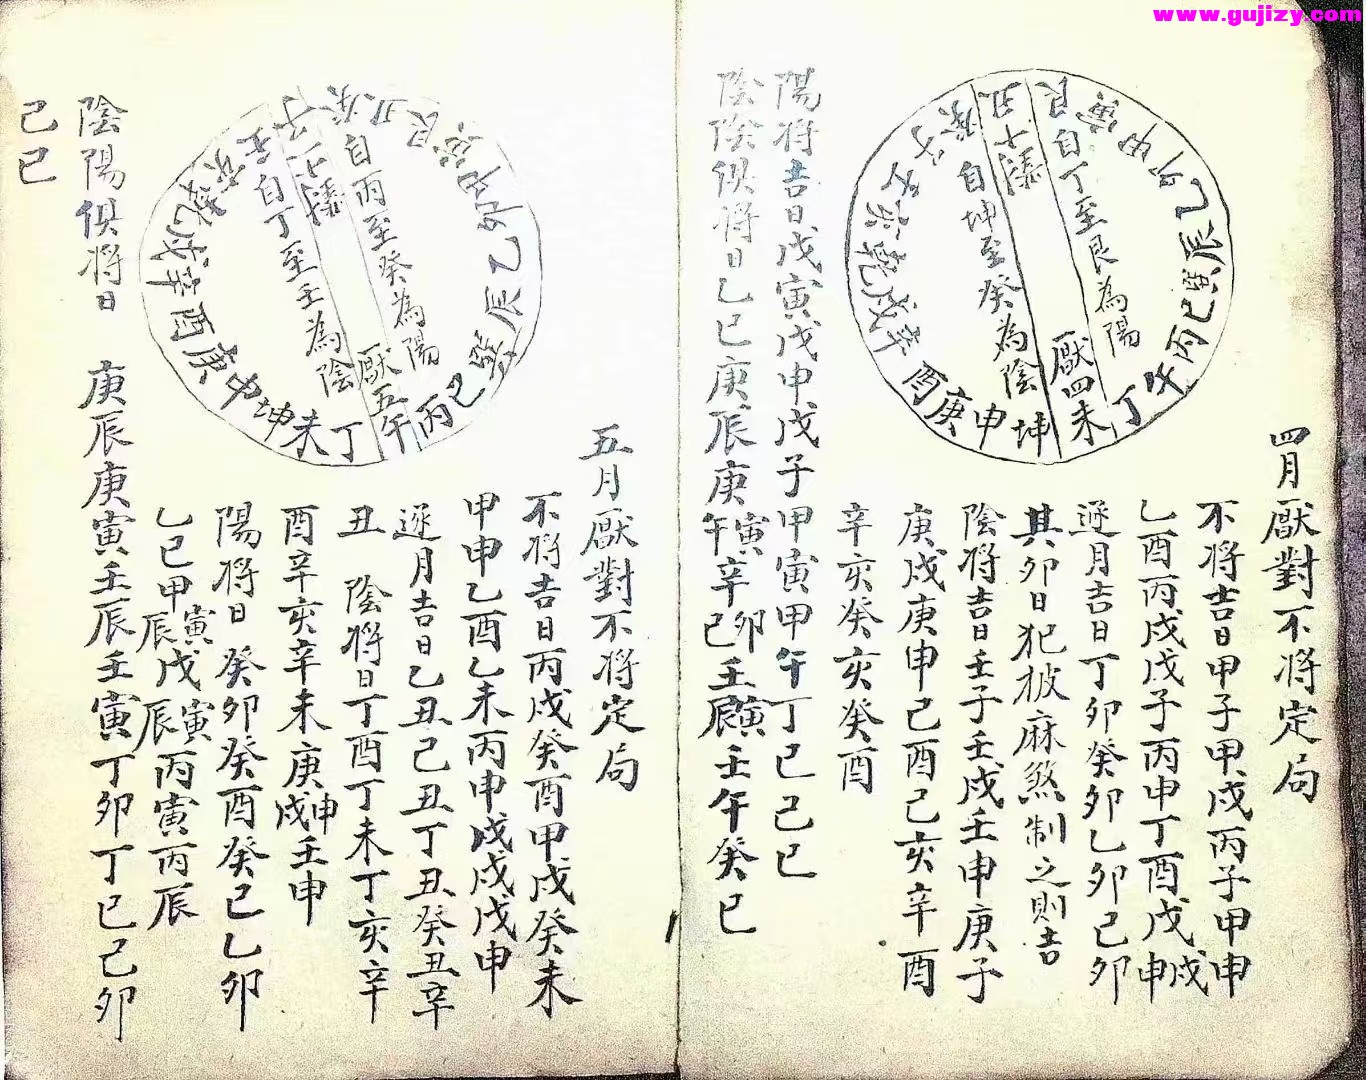 www.gujizy.com
四月厭對不將定局
不将吉日甲子甲戌丙子甲申
乙酉丙戌戊子丙申丁酉戊申戊戌
逐月吉日丁卯癸卯乙卯己卯
其卯日犯披麻煞制之則吉
陰将吉日壬子壬戌壬申庚子
庚戌庚申己酉己亥辛酉
辛亥癸亥癸酉
陽将吉日戊寅戊申戊子甲寅甲午丁巳己巳
陰陰俱将日乙巳庚辰庚寅午辛卯巳壬寅辰壬午癸巳
自丁至艮為陽
厭四
自坤至癸為陰
艮寅甲卯乙辰巽巳丙午丁未坤申庚酉辛戌乾亥壬子癸丑
五月厭對不将定局
不将吉日丙戌癸酉甲戌癸未
甲申乙酉乙未丙申戊戌戊申
逐月吉日乙丑己丑丁丑癸丑辛
丑 陰将日丁酉丁未丁亥辛
酉辛亥辛未庚申戌壬申
陽将日癸卯癸酉癸巳乙卯
乙巳甲寅辰戊寅辰丙寅丙辰
陰陽俱将日 庚辰庚寅壬辰壬寅丁卯丁巳己卯
己巳
自丙至癸為陽
厭五
自丁至壬為陰
丑艮寅甲卯乙辰巽巳丙午丁未坤申庚酉辛戌乾亥壬子癸